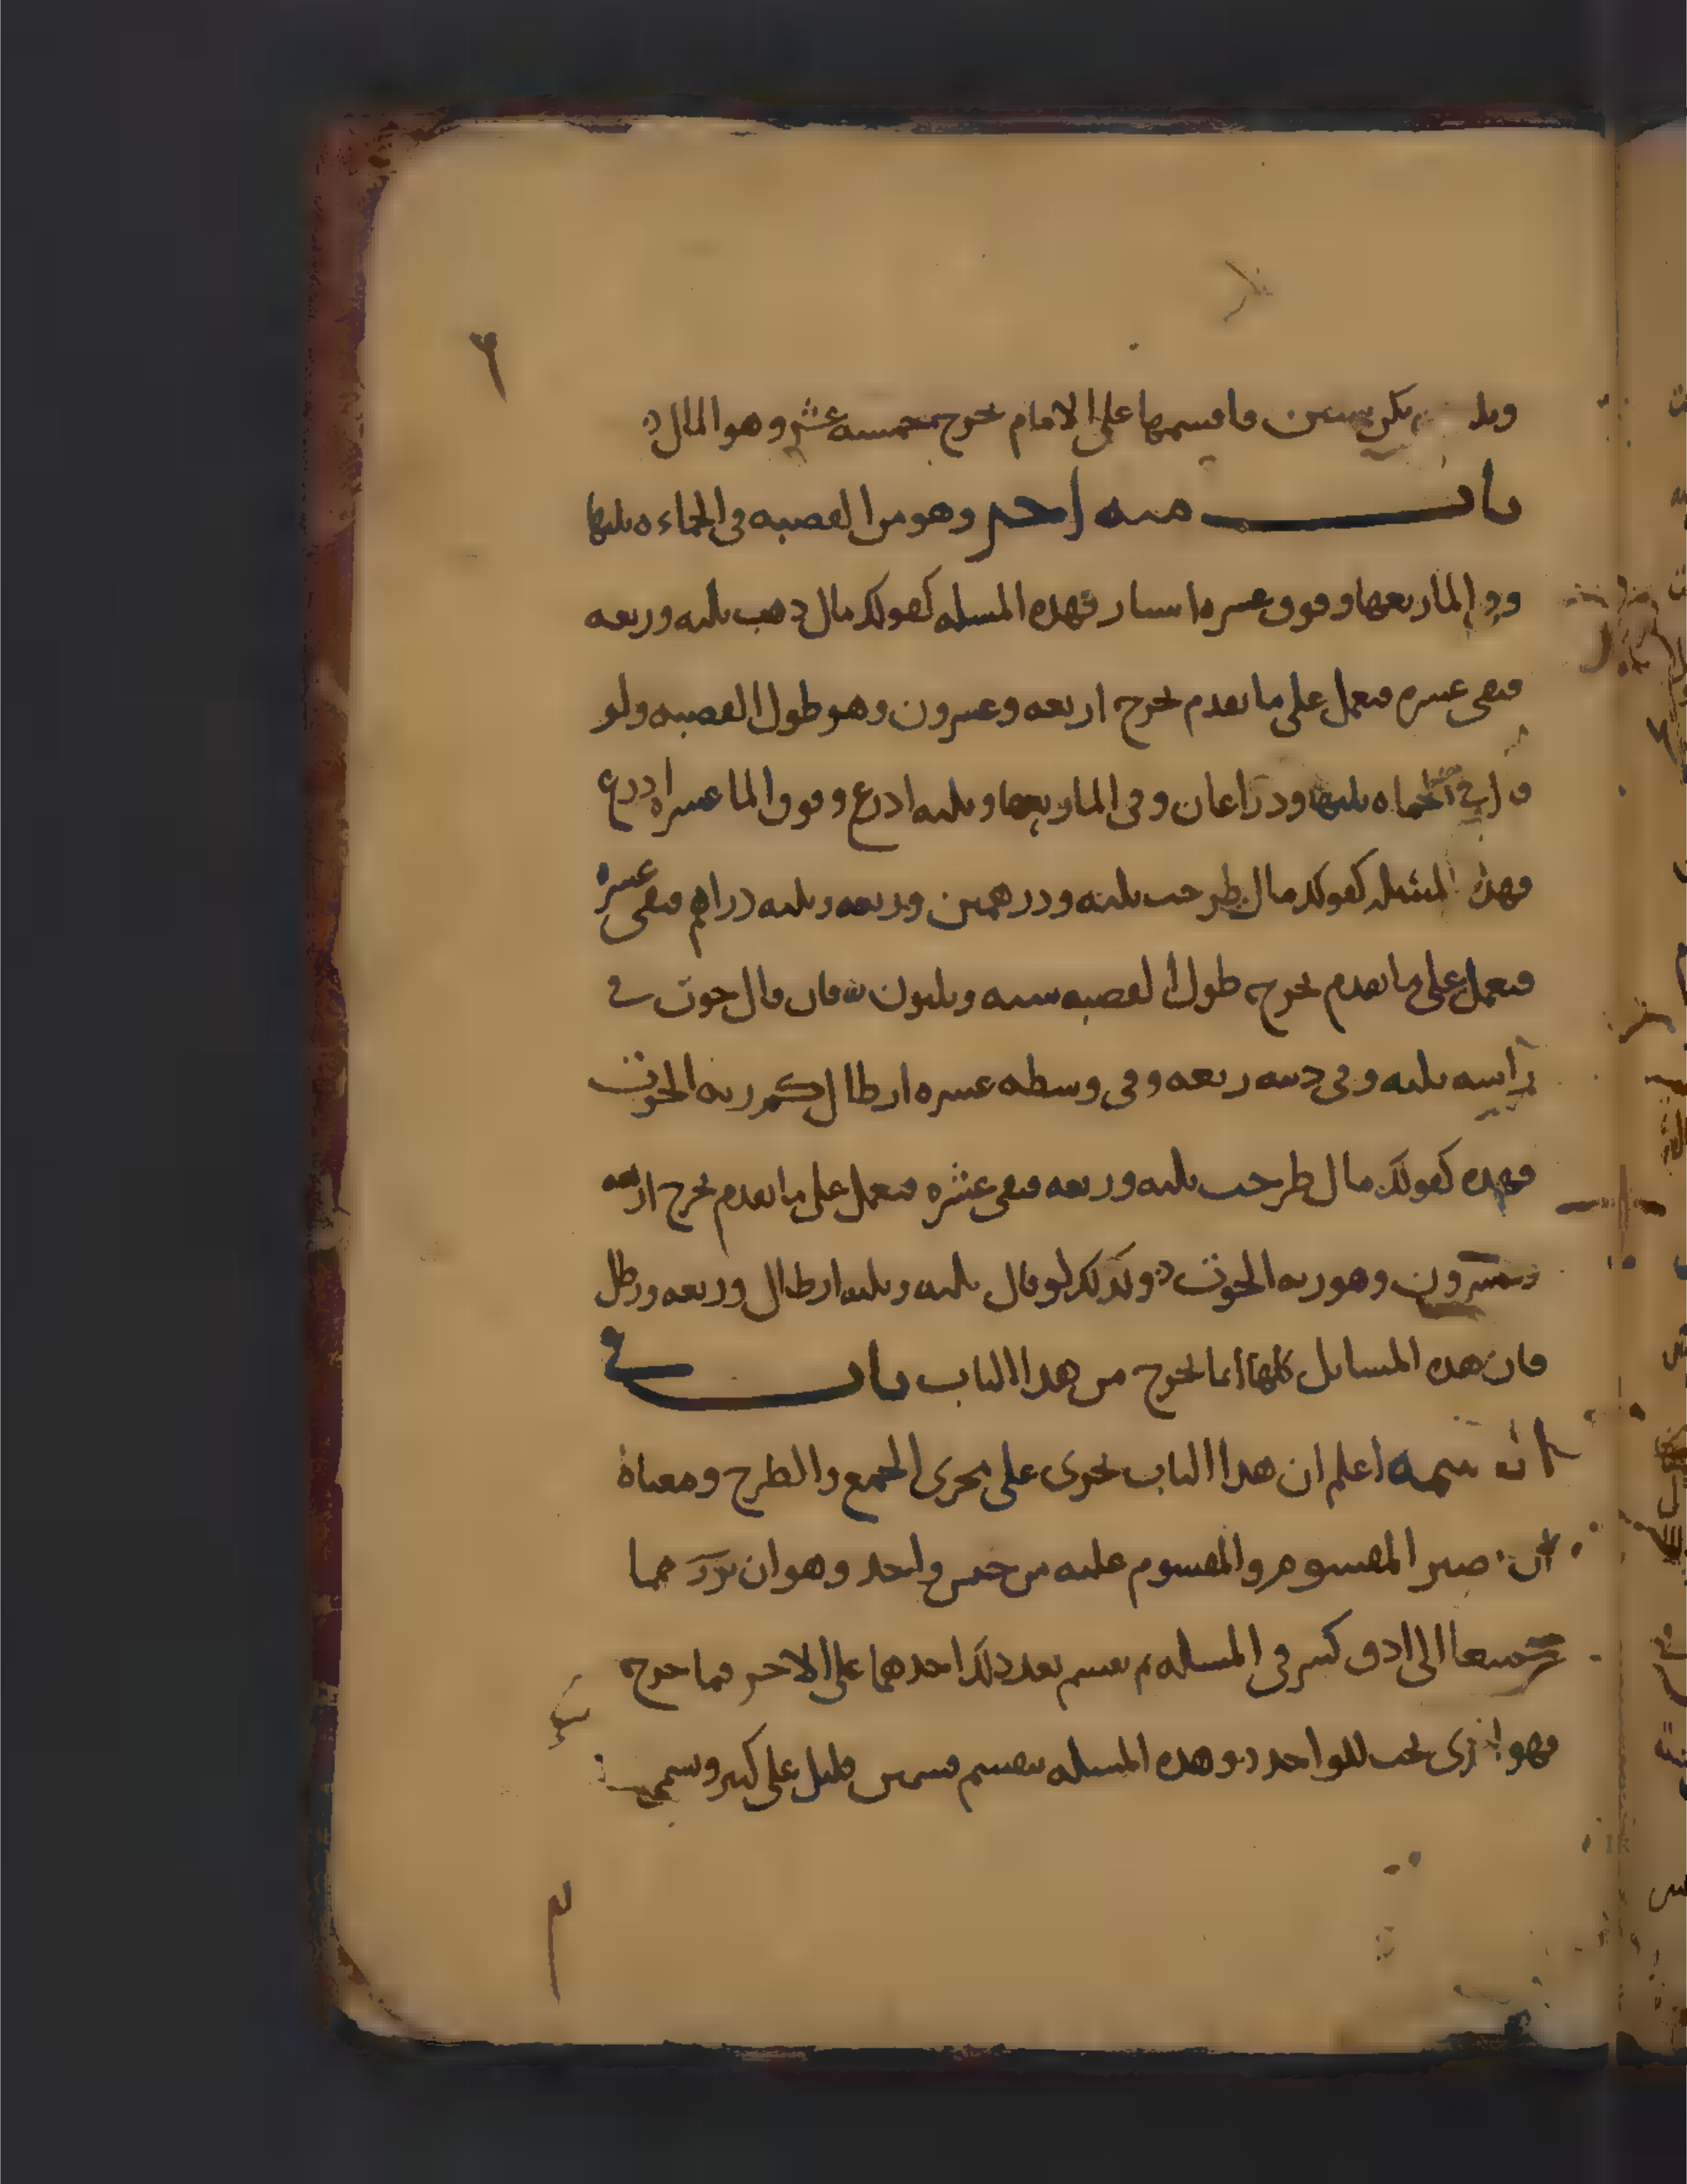 ٦
يكن ستين فاقسمها على الامام تخرج خمسه عشر وهو المال
باب منه اخر وهو من القصبه في الحماه ثلثها
وفي الما ربعها وفوق عشره اشبار فهذه المسله كقولك مال ذهب ثلثه وربعه
فبقي عشره فتعمل على ما تقدم تخرج اربعه وعشرون وهو طول القصبه ولو
قال في الحماه ثلثها وذراعان وفي الما ربعها وثلثه اذرع وفوق الما عشر اذرع
فهذه المسله كقولك مال طرحت ثلثه ودرهمين وربعه وثلثه دراهم فبقي عشره
فتعمل على ما تقدم تخرج طول القصبه سته وثلثون فان قال حوت في
راسه ثلثه وفي ذنبه ربعه وفي وسطه عشره ارطال كم زنه الحوت
فهذه كقولك مال طرحت ثلثه وربعه فبقي عشره فتعمل على ما تقدم تخرج اربعه
وعشرون وهو زنه الحوت وكذلك لو قال ثلثه وثلثه ارطال وربعه ورطل
فان هذه المسايل كلها انما تخرج من هذا الباب باب في
القسمه اعلم ان هذا الباب يجرى على مجرى الجمع والطرح ومعناه
ان تصير المقسوم والمقسوم عليه من جنس واحد وهو ان تردهما
جميعا الى ادق كسر في المسله ثم تقسم بعد ذلك احدهما على الاخر فما خرج
فهو الذى يجب للواحد وهذه المسله تنقسم قسمين قليل على كثير وتسمى